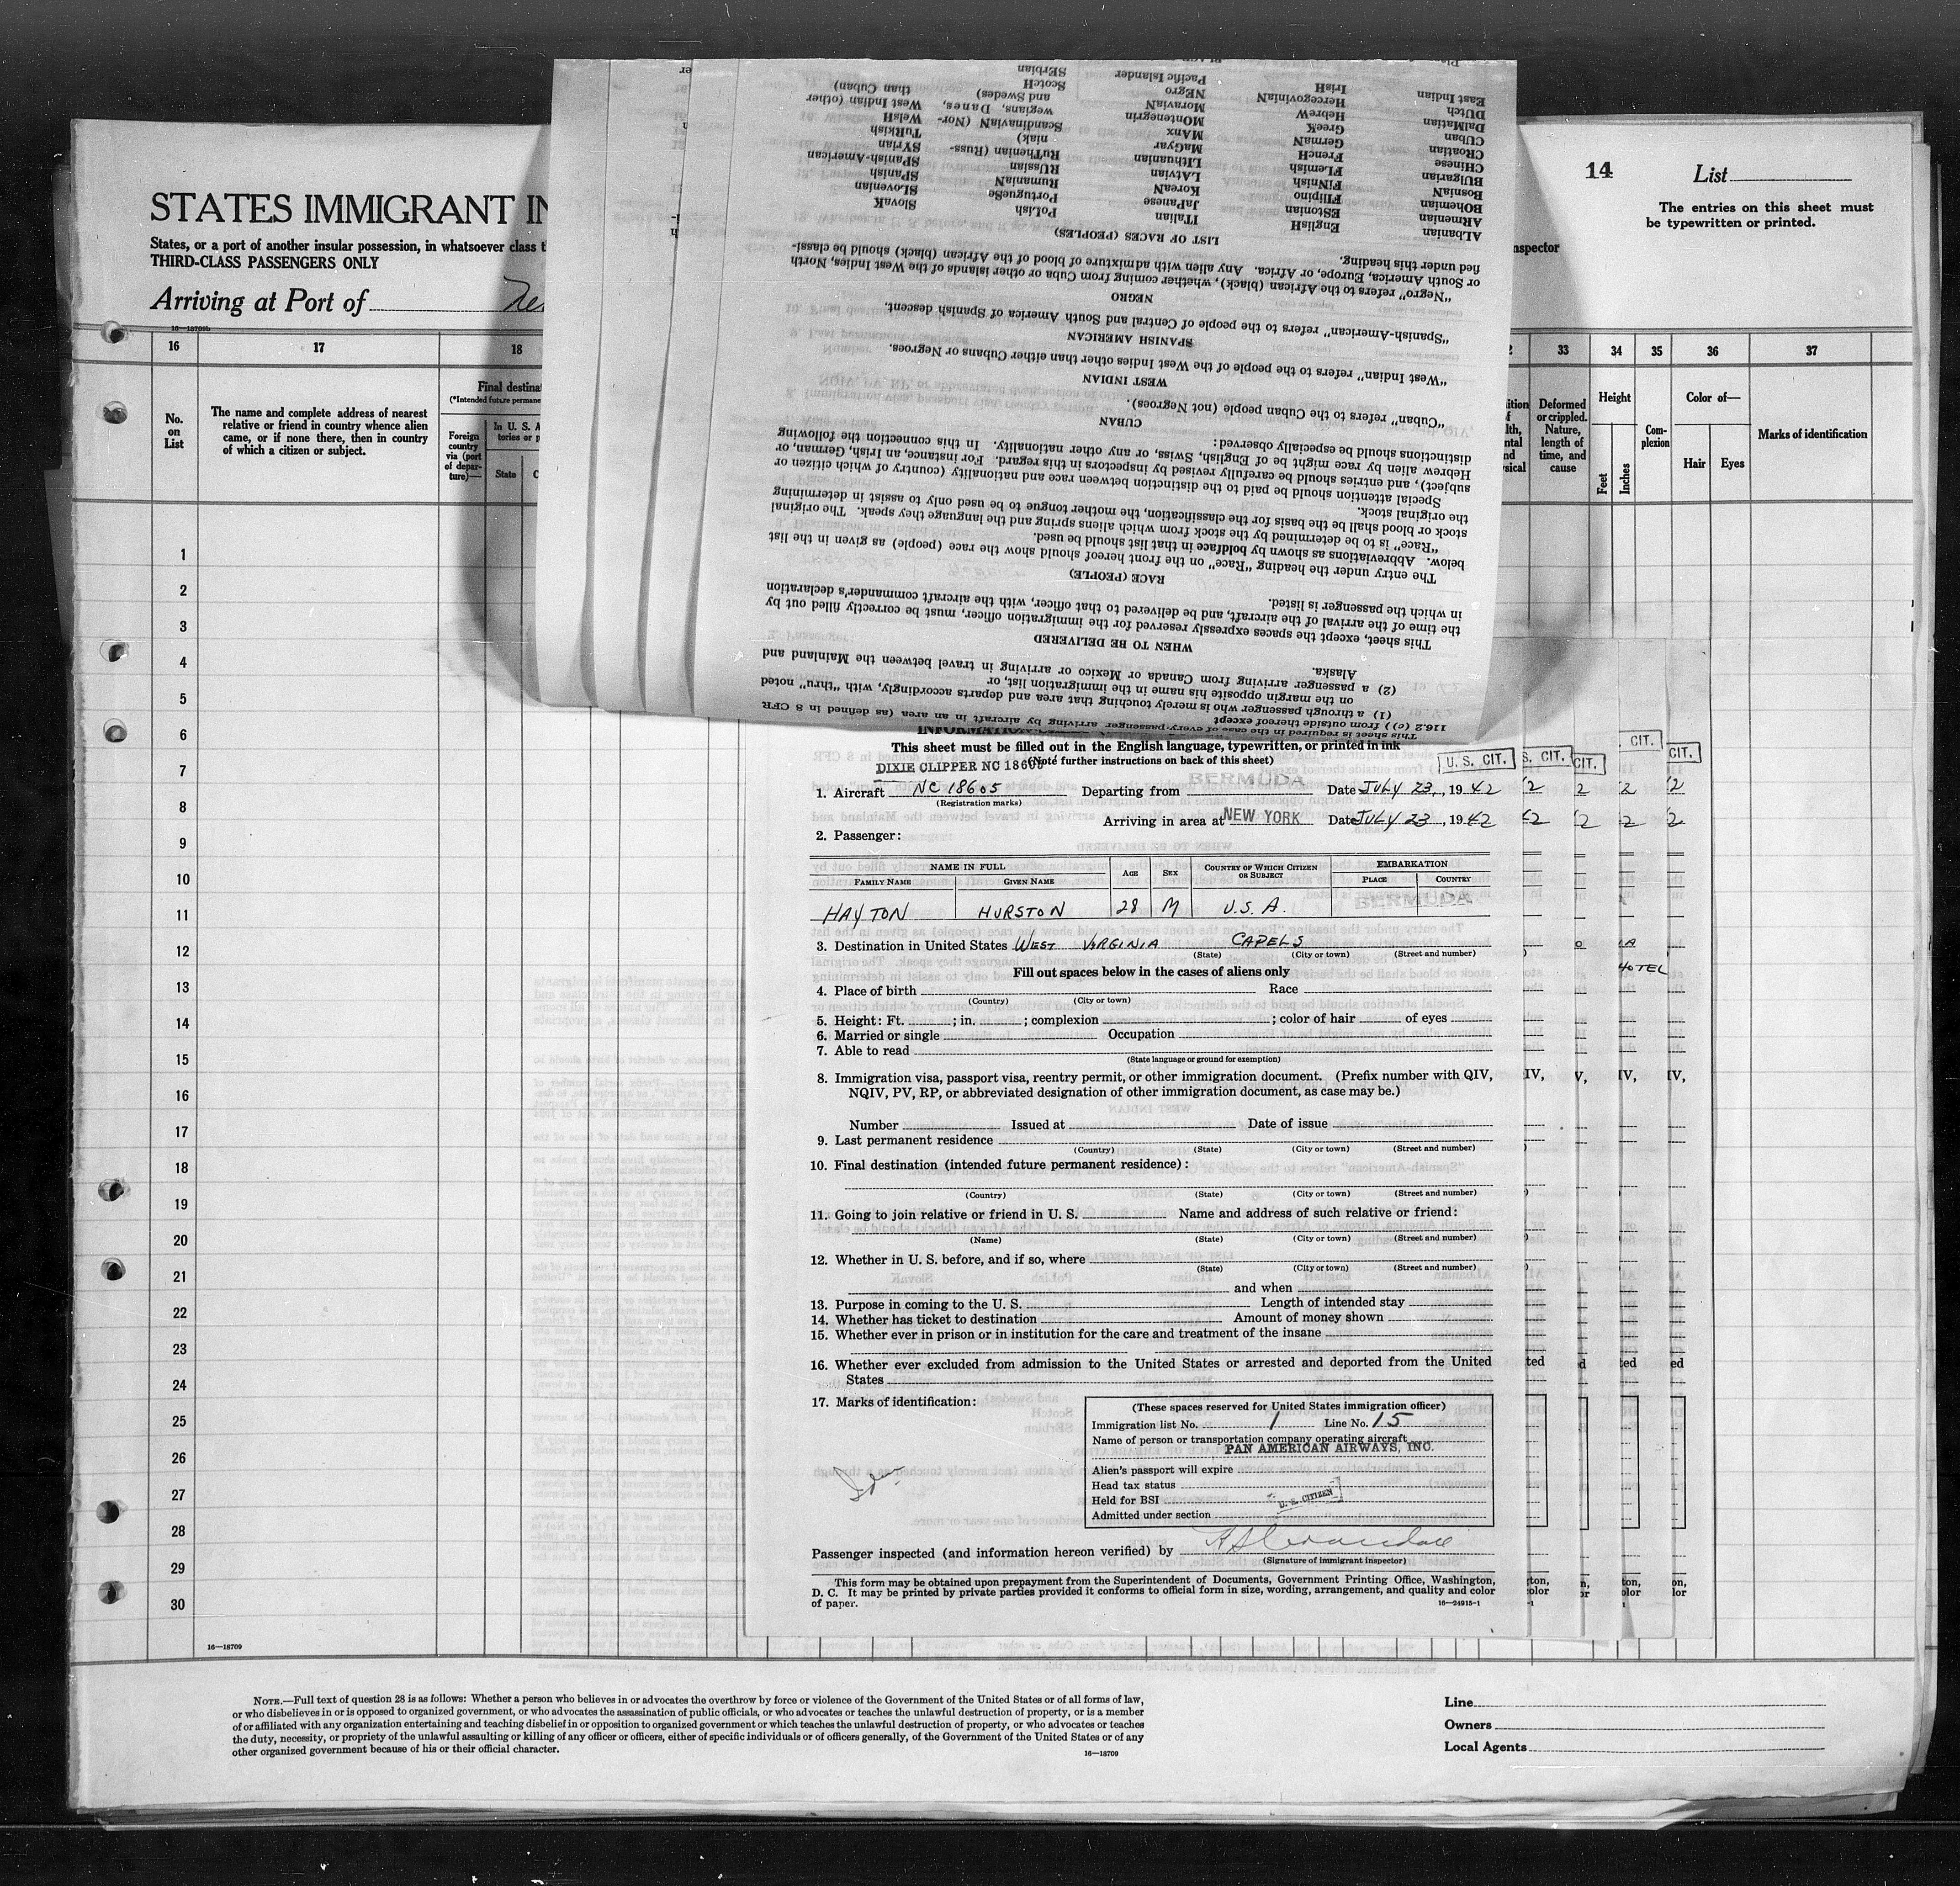 STATES IMMIGRANT IN
States, or a port of another insular possession, in whatsoever class t
THIRD-CLASS PASSENGERS ONLY
Arriving at Port of
16—18709b
14
List
The entries on this sheet must
be typewritten or printed.
nspector
16
17
18
33
34
35
36
37
No.
on
List
The name and complete address of nearest
relative or friend in country whence alien
came, or if none there, then in country
of which a citizen or subject.
Final destinat
(*Intended future permane
Foreign
country
via (port
of depar-
ture)—
In U. S. A
tories or p
State
C
Deformed
or crippled.
Nature,
length of
time, and
cause
Height
Feet
Inches
Com-
plexion
Color of—
Hair
Eyes
Marks of identification
1
2
3
4
5
6
7
8
9
10
11
12
13
14
15
16
17
18
19
20
21
22
23
24
25
26
27
28
29
30
16—18709
116.2 (e)) from outside thereof except
(1) a through passenger who is merely touching that area and departs accordingly, with "thru" noted
on the margin opposite his name in the immigration list, or
(2) a passenger arriving from Canada or Mexico or arriving in travel between the Mainland and
Alaska.
WHEN TO BE DELIVERED
This sheet, except the spaces expressly reserved for the immigration officer, must be correctly filled out by
the time of the arrival of the aircraft, and be delivered to that officer, with the aircraft commander's declaration
in which the passenger is listed.
RACE (PEOPLE)
The entry under the heading "Race" on the front hereof should show the race (people) as given in the list
below. Abbreviations as shown by boldface in that list should be used.
"Race" is to be determined by the stock from which aliens spring and the language they speak. The original
stock or blood shall be the basis for the classification, the mother tongue to be used only to assist in determining
the original stock.
Special attention should be paid to the distinction between race and nationality (country of which citizen or
subject), and entries should be carefully revised by inspectors in this regard. For instance, an Irish, German, or
Hebrew alien by race might be of English, Swiss, or any other nationality. In this connection the following
distinctions should be especially observed:
CUBAN
"Cuban" refers to the Cuban people (not Negroes).
WEST INDIAN
"West Indian" refers to the people of the West Indies other than either Cubans or Negroes.
SPANISH AMERICAN
"Spanish-American" refers to the people of Central and South America of Spanish descent.
NEGRO
"Negro" refers to the African (black), whether coming from Cuba or other islands of the West Indies, North
or South America, Europe, or Africa. Any alien with admixture of blood of the African (black) should be classi-
fied under this heading.
LIST OF RACES (PEOPLES)
ALbanian EnglisH ITalian PoLish SlovaK
ARmenian EStonian JaPanese PortuguеSe SLOvenian
BOHemian FIlipino KoreaN RumaniaN SPanish
BosniaN FiNnish LATvian RUssian SPanish-American
BUlgarian FLemish LIthuanian RuThenian (Russ- SYrian
CHInese FrencH MaGyar niak) TuRKish
CRoatian GermaN MAnx ScandinaviaN (Nor- WelsH
CUban GreeK MOntenegrin wegians, Danes, West Indian (other
DalMatian HebreW MoraviaN and Swedes) than Cuban)
DUtch HercegoviniaN NEgro ScotcH
East Indian IrisH Pacific Islander SErbian
This sheet must be filled out in the English language, typewritten, or printed in ink
(Note further instructions on back of this sheet)
DIXIE CLIPPER NC 18605
U. S. CIT.
S. CIT.
CIT.
CIT.
CIT.
1. Aircraft NC 18605 Departing from BERMUDA Date JULY 23, 1942
(Registration marks)
Arriving in area at NEW YORK Date JULY 23, 1942
2. Passenger:
NAME IN FULL
FAMILY NAME GIVEN NAME AGE SEX COUNTRY OF WHICH CITIZEN OR SUBJECT EMBARKATION PLACE COUNTRY
HAYTON HURSTON 28 M U.S.A. BERMUDA
3. Destination in United States WEST VIRGINIA CAPELS
(State) (City or town) (Street and number)
HOTEL
Fill out spaces below in the cases of aliens only
4. Place of birth Race
(Country) (City or town)
5. Height: Ft. ; in. ; complexion ; color of hair of eyes
6. Married or single Occupation
7. Able to read
(State language or ground for exemption)
8. Immigration visa, passport visa, reentry permit, or other immigration document. (Prefix number with QIV,
NQIV, PV, RP, or abbreviated designation of other immigration document, as case may be.)
Number Issued at Date of issue
9. Last permanent residence
(Country) (State) (City or town) (Street and number)
10. Final destination (intended future permanent residence):
(Country) (State) (City or town) (Street and number)
11. Going to join relative or friend in U. S. Name and address of such relative or friend:
(Name) (State) (City or town) (Street and number)
12. Whether in U. S. before, and if so, where
(State) (City or town) (Street and number)
and when
13. Purpose in coming to the U. S. Length of intended stay
14. Whether has ticket to destination Amount of money shown
15. Whether ever in prison or in institution for the care and treatment of the insane
16. Whether ever excluded from admission to the United States or arrested and deported from the United
States
17. Marks of identification:
(These spaces reserved for United States immigration officer)
Immigration list No. 1 Line No. 15
Name of person or transportation company operating aircraft
PAN AMERICAN AIRWAYS, INC.
Alien's passport will expire
Head tax status
Held for BSI
U. S. CITIZEN
Admitted under section
Passenger inspected (and information hereon verified) by
(Signature of immigrant inspector)
This form may be obtained upon prepayment from the Superintendent of Documents, Government Printing Office, Washington,
D. C. It may be printed by private parties provided it conforms to official form in size, wording, arrangement, and quality and color
of paper.
16—24915-1
NOTE.—Full text of question 28 is as follows: Whether a person who believes in or advocates the overthrow by force or violence of the Government of the United States or of all forms of law,
or who disbelieves in or is opposed to organized government, or who advocates the assassination of public officials, or who advocates or teaches the unlawful destruction of property, or is a member
of or affiliated with any organization entertaining and teaching disbelief in or opposition to organized government or which teaches the unlawful destruction of property, or who advocates or teaches
the duty, necessity, or propriety of the unlawful assaulting or killing of any officer or officers, either of specific individuals or of officers generally, of the Government of the United States or of any
other organized government because of his or their official character.
16—18709
Line
Owners
Local Agents